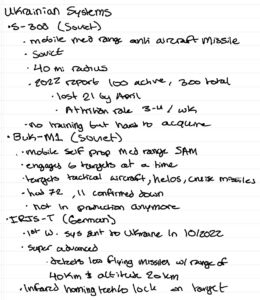 Ukrainian Systems
• S-300 (Soviet)
• mobile med range anti aircraft missile
• Soviet
• 40 mi radius
• 2022 report 100 active, 300 total
• lost 21 by April
• Attrition rate 3-4/wk
• no training but hard to acquire
• Buk-M1 (Soviet)
• mobile self prop med range SAM
• engages 6 targets at a time
• targets tactical aircraft, helos, cruise missiles
• had 72, 11 confirmed down
• not in production anymore
• IRIS-T (German)
• 1st W. sys sent to Ukraine in 10/2022
• super advanced
• detects low flying missiles w/ range of
40km & altitude 20km
• Infrared homing tech to lock on target